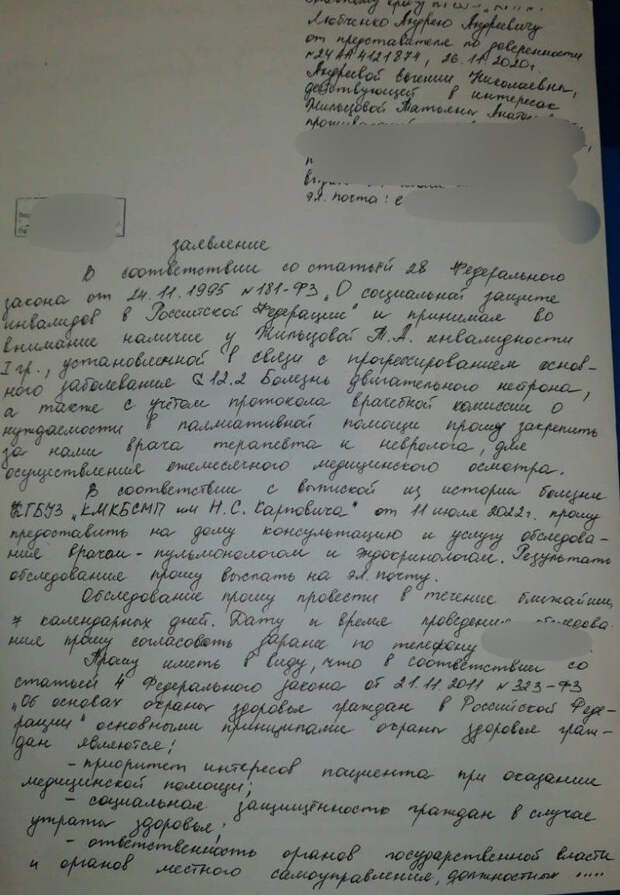 Любченко Андрею Андреевичу
от представителя по доверенности
№24АА4121874, 26.11.2020г.
Андреевой Евгении Николаевны,
действующей в интересах
Жильцовой Татьяны
эл. почта: е
заявление
В соответствии со статьёй 28 Федерального
закона от 24.11.1995 №181-ФЗ „О социальной защите
инвалидов в Российской Федерации" и принимая во
внимание наличие у Жильцовой Т.А. инвалидности
I гр., установленной в связи с прогрессированием основ-
ного заболевания G 12.2 Болезнь двигательного нейрона,
а также с учётом протокола врачебной комиссии о
нуждаемости в паллиативной помощи прошу закрепить
за нами врача терапевта и невролога, для
осуществления ежемесячного медицинского осмотра.
В соответствии с выпиской из истории болезни
КГБУЗ „КМКБСМП им Н.С. Карповича" от 11 июля 2022г. прошу
предоставить на дому консультацию и услугу обследова-
ния врачам-пульмонологом и эндокринологом. Результаты
обследования прошу выслать на эл. почту.
Обследование прошу провести в течение ближайших
7 календарных дней. Дату и время проведения
ния прошу согласовать заранее по телефону
Прошу иметь в виду, что в соответствии со
статьёй 4 Федерального закона от 21.11.2011 №323-ФЗ
„Об основах охраны здоровья граждан в Российской Феде-
рации" основными принципами охраны здоровья граж-
дан являются:
- приоритет интересов пациента при оказании
медицинской помощи;
- социальная защищённость граждан в случае
утраты здоровья;
- ответственность органов государственной власти
и органов местного самоуправления, должностных .....